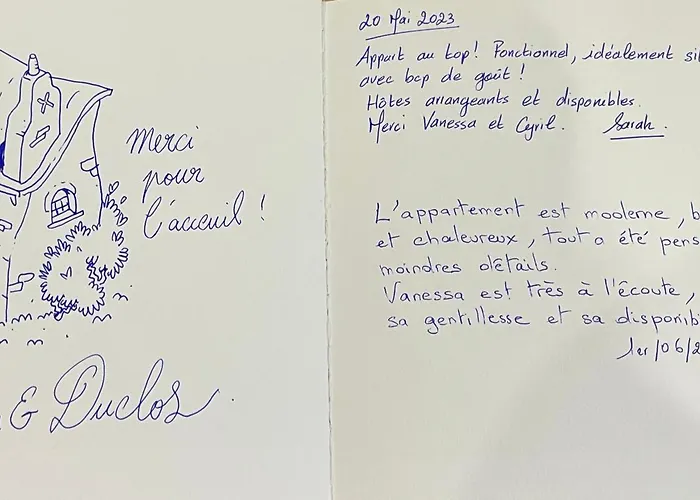 Merci
pour
l'acceuil !
& Duclos
20 Mai 2023
Appart au top! Fonctionnel, idéalement si
avec bcp de goût !
Hôtes arrangeants et disponibles.
Merci Vanessa et Cyril. Sarah.
L'appartement est moderne, b
et chaleureux, tout a été pens
moindres détails.
Vanessa est très à l'écoute,
sa gentillesse et sa disponibi
1er/06/2